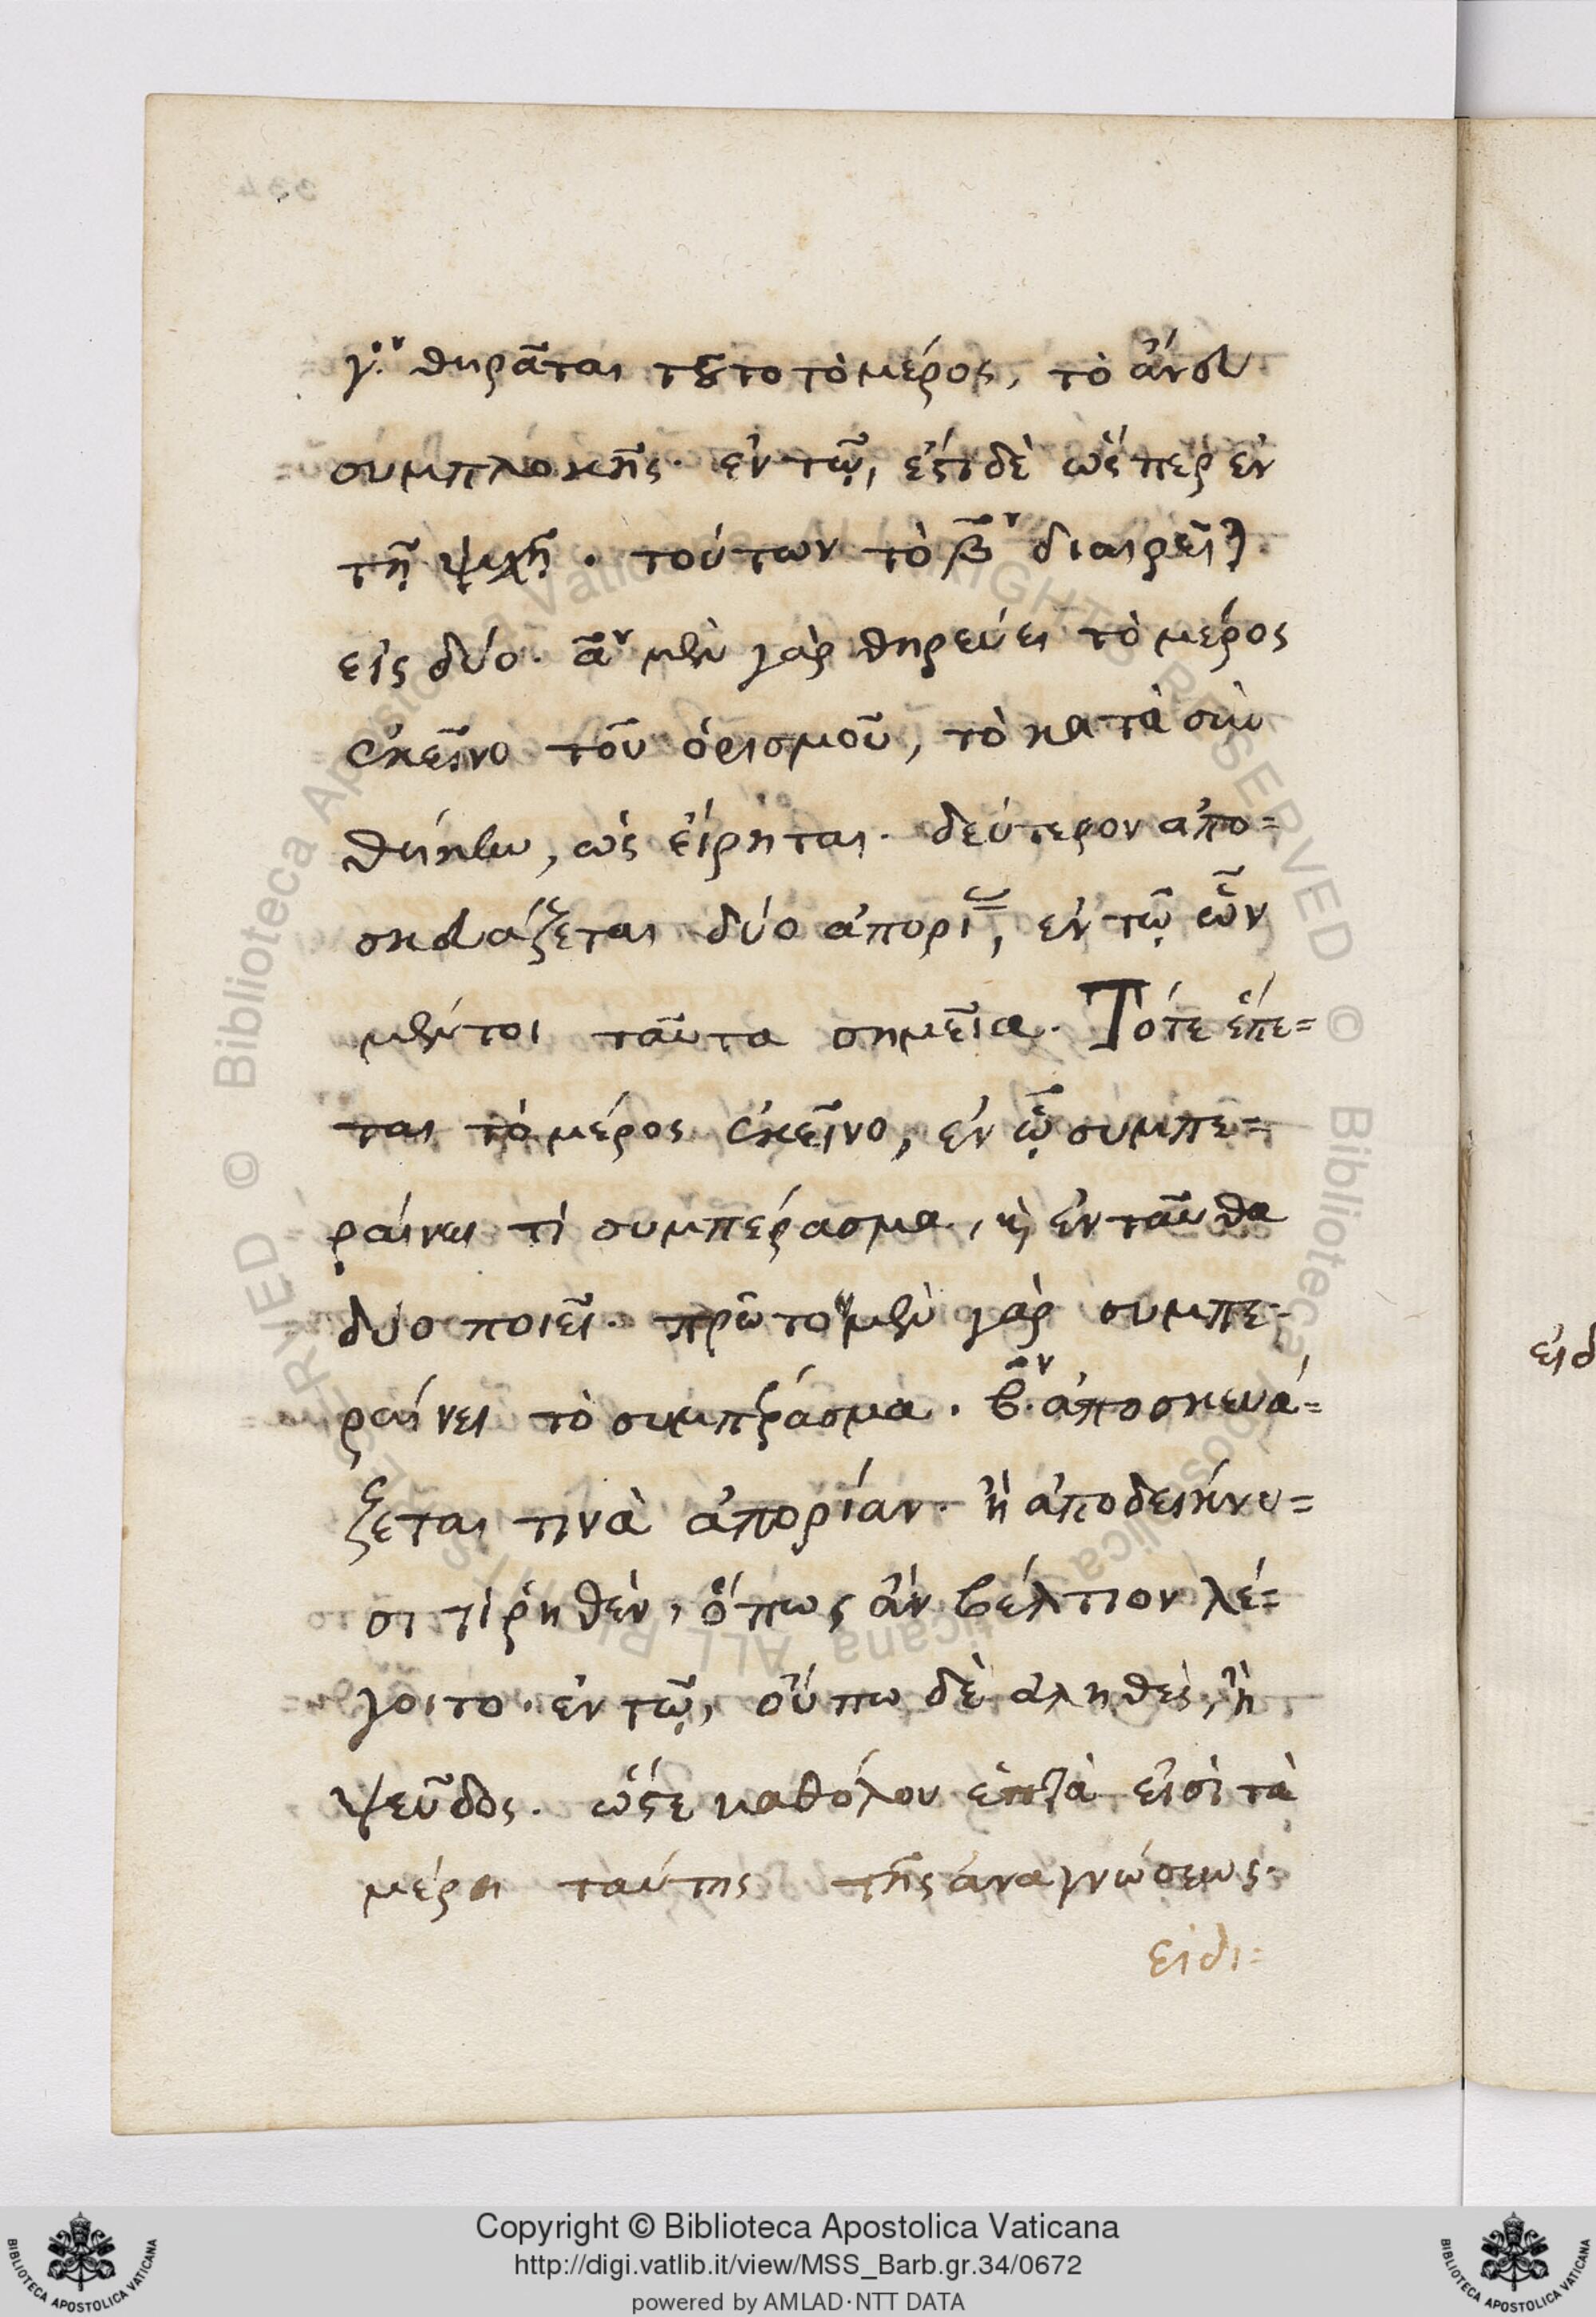 γ.ον θηρᾶται τοῦτο τὸ μέρος, τὸ ἄνευ
συμπλοκῆς. ἐν τῷ, ἔστι δὲ ὥσπερ ἐν
τῇ ψυχῇ. τούτων τὸ β̄ον διαιρεῖται
εἰς δύο. ᾱον μὲν γὰρ θηρεύει τὸ μέρος
ἐκεῖνο τοῦ ὁρισμοῦ, τὸ κατὰ συν
θήκην, ὡς εἴρηται. δεύτερον ἀπο=
σκευάζεται δύο ἀπορίας, ἐν τῷ ὧν
μέντοι ταῦτα σημεῖα. Τότε ἕπε=
ται τὸ μέρος ἐκεῖνο, ἐν ᾧ συμπε=
ραίνει τὶ συμπέρασμα, καὶ ἐνταῦθα
δύο ποιεῖ. πρῶτον μὲν γὰρ συμπε-
ραίνει τὸ συμπέρασμα. β.ον ἀποσκευά=
ζεται τινὰ ἀπορίαν. ἢ ἀποδείκνυ=
σι τὶ ῥηθὲν, ὅπως ἂν βέλτιον λέ=
γοιτο. ἐν τῷ, οὔπω δὲ ἀληθὲς, ἢ
ψεῦδος. ὥστε καθόλου ἑπτὰ εἰσὶ τὰ
μέρη ταύτης τῆς ἀναγνώσεως.
εἰδι=
εἰδ
Copyright © Biblioteca Apostolica Vaticana
http://digi.vatlib.it/view/MSS_Barb.gr.34/0672
powered by AMLAD·NTT DATA